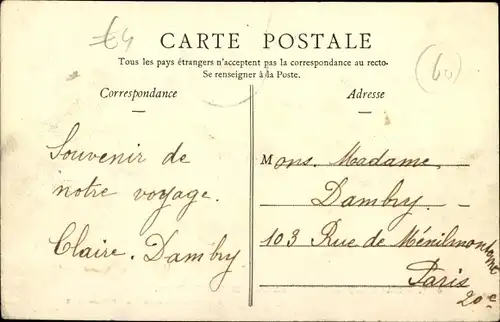 £4
CARTE POSTALE
(60)
Tous les pays étrangers n'acceptent pas la correspondance au recto.
Se renseigner à la Poste.
Correspondance
Souvenir de
notre voyage.
Claire. Dambry
Adresse
Mons. Madame
Dambry.
103 Rue de Ménilmontant
Paris
20e